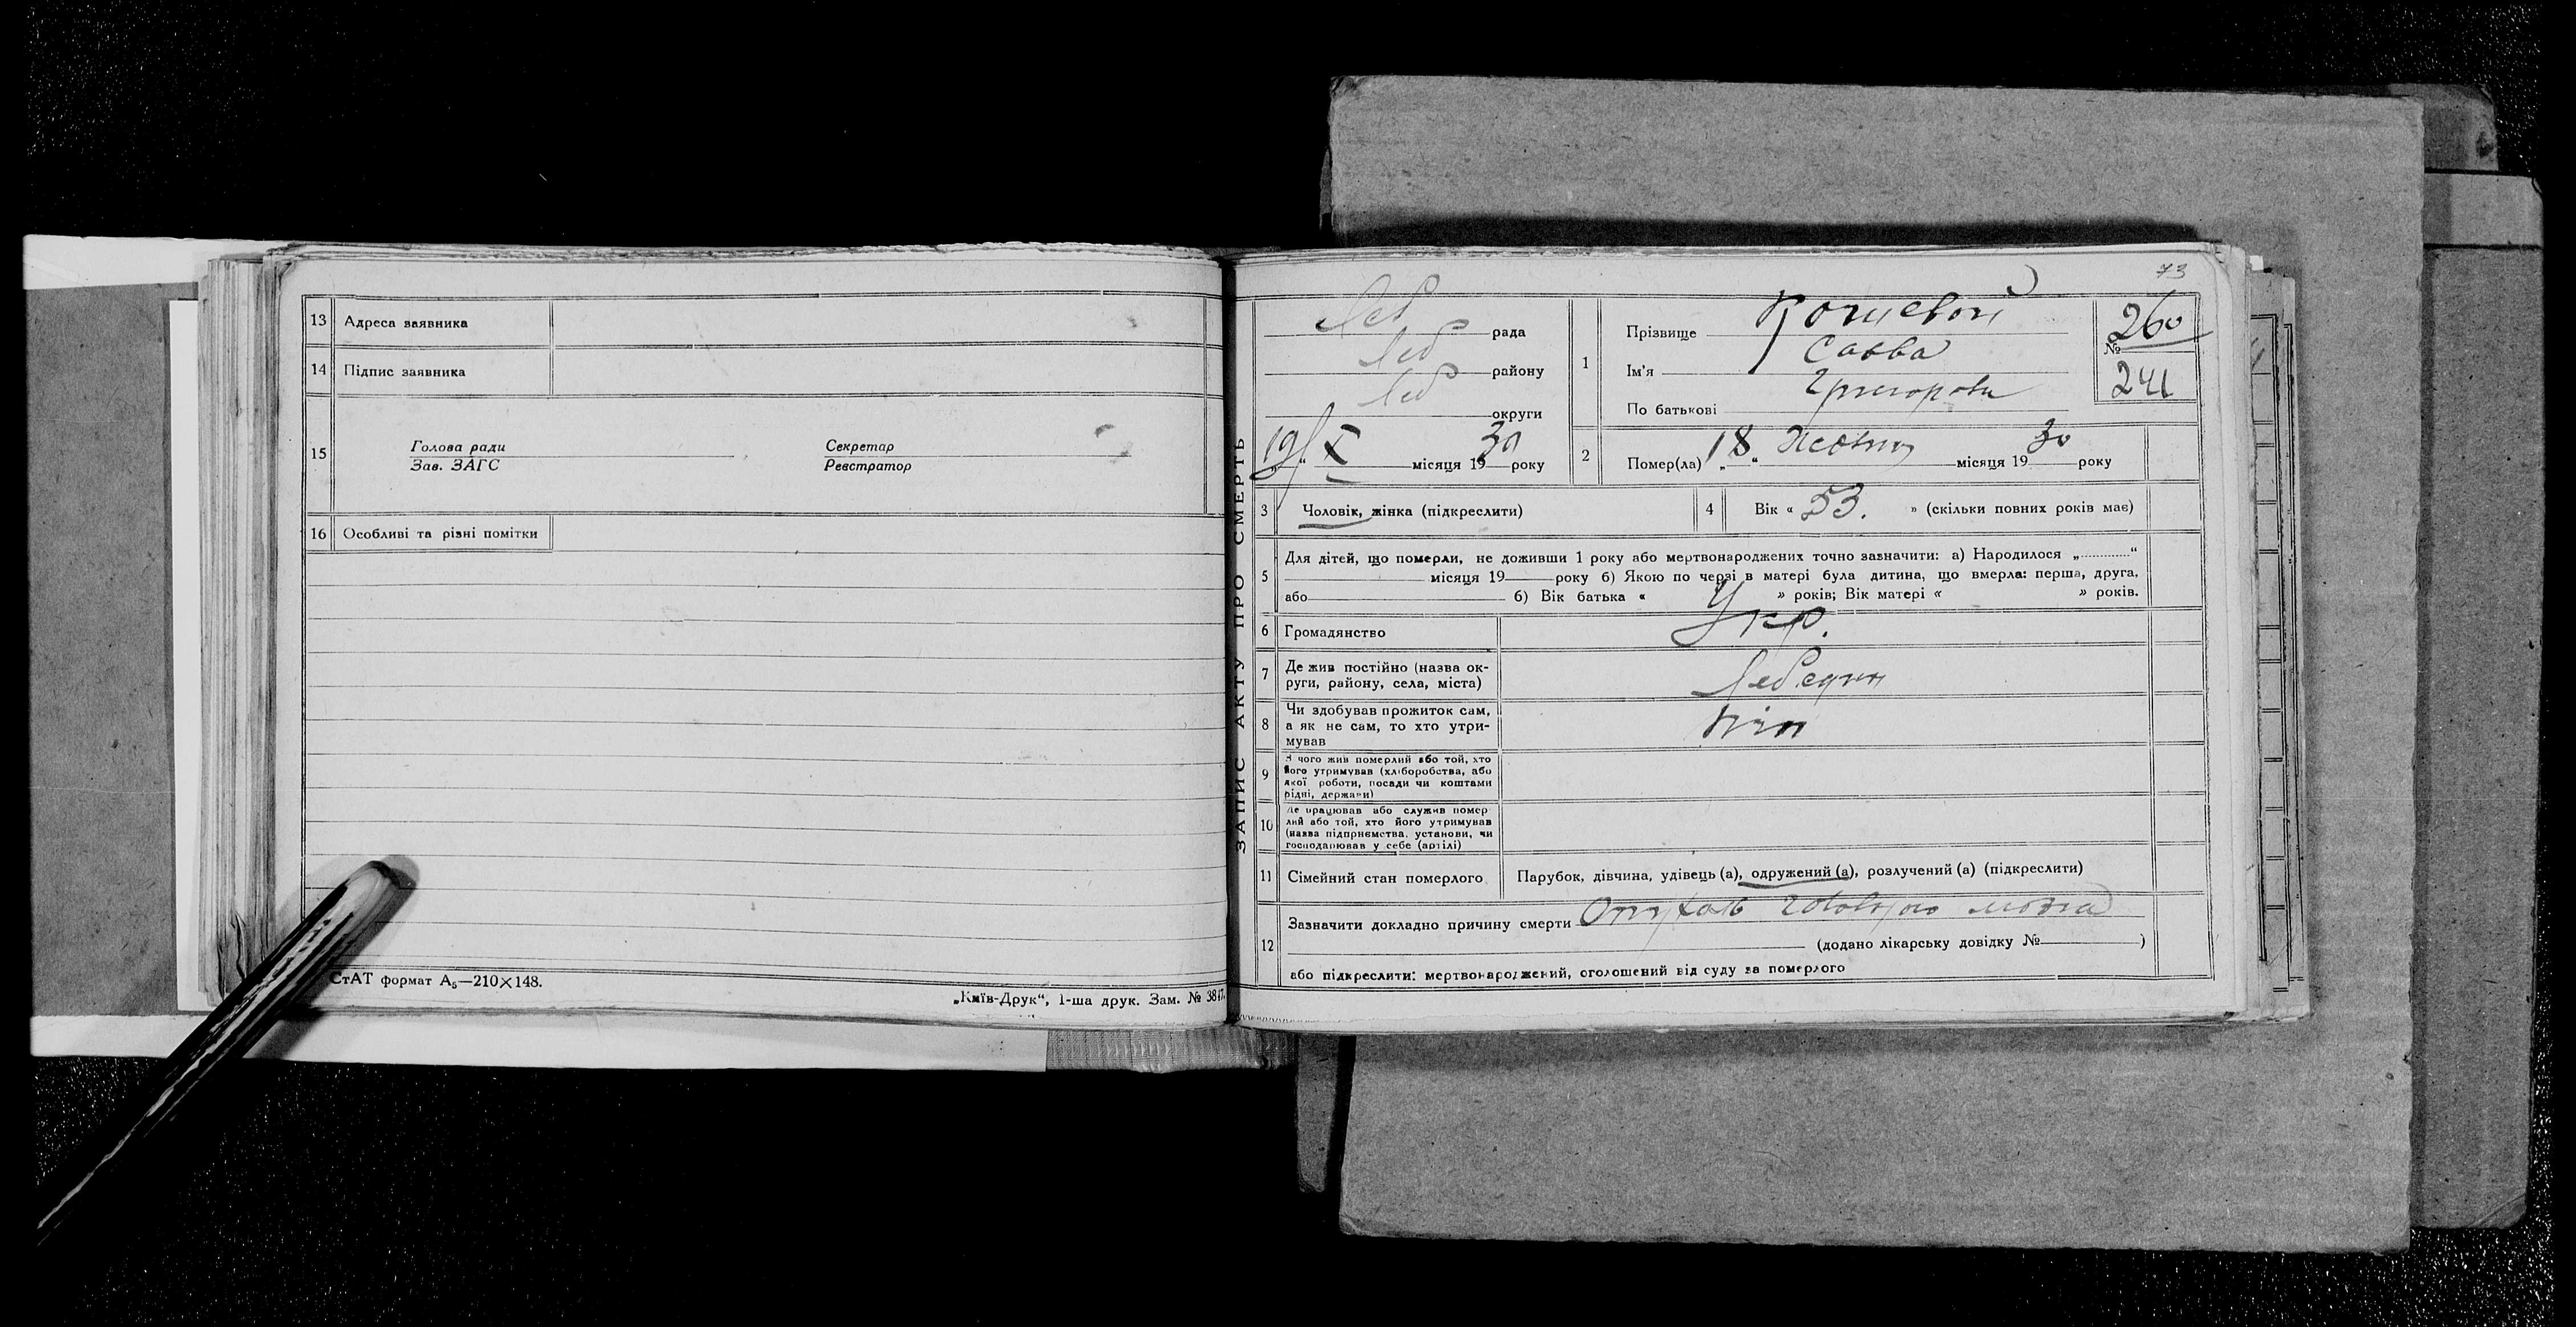 13 Адреса заявника
14 Підпис заявника
15 Голова ради Секретар
Зав. ЗАГС Реєстратор
16 Особливі та різні помітки
СтАТ формат А₅—210×148.
„Київ-Друк“, 1-ша друк. Зам. №
ЗАПИС АКТУ ПРО СМЕРТЬ
73
Леб рада
Леб району
Леб округи
19/X місяця 1930 року
1 Прізвище Кошевой
Ім'я Савва
По батькові Григоров
260
№
241
2 Помер(ла) „18“ Жовтня місяця 1930 року
3 Чоловік, жінка (підкреслити)
4 Вік « 53. » (скільки повних років має)
5 Для дітей, що померли, не доживши 1 року або мертвонароджених точно зазначити: а) Народилося „............“
місяця 19 року б) Якою по черзі в матері була дитина, що вмерла: перша, друга,
або б) Вік батька « » років; Вік матері « » років.
6 Громадянство Укр.
7 Де жив постійно (назва ок-
руги, району, села, міста) Лебедин
8 Чи здобував прожиток сам,
а як не сам, то хто утри-
мував
9 З чого жив померлий або той, хто
його утримував (хліборобства, або
якої роботи, посади чи коштами
рідні, держави)
10 Де працював або служив помер
лий або той, хто його утримував
(назва підприємства, установи, чи
господарював у себе (артілі)
11 Сімейний стан померлого Парубок, дівчина, удівець (а), одружений (а), розлучений (а) (підкреслити)
12 Зазначити докладно причину смерти Опухоль головного мозга
(додано лікарську довідку № )
або підкреслити: мертвонароджений, оголошений від суду за померлого